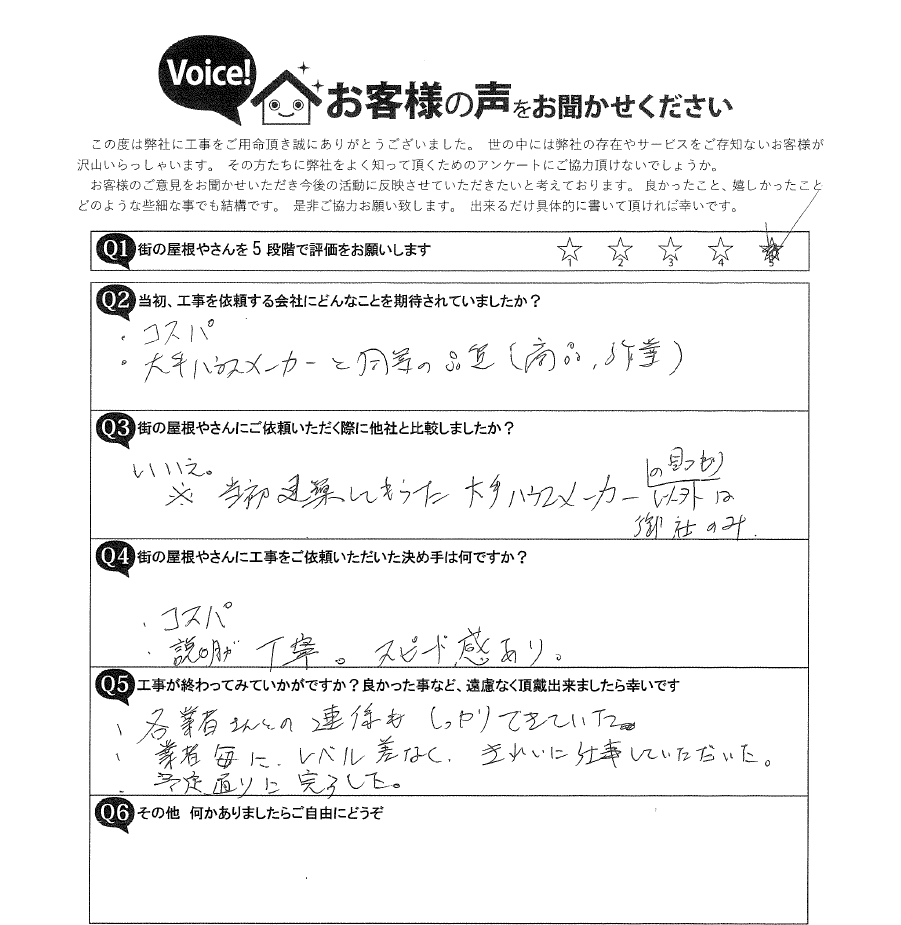 Voice!
お客様の声をお聞かせください
この度は弊社に工事をご用命頂き誠にありがとうございました。 世の中には弊社の存在やサービスをご存知ないお客様が
沢山いらっしゃいます。 その方たちに弊社をよく知って頂くためのアンケートにご協力頂けないでしょうか。
お客様のご意見をお聞かせいただき今後の活動に反映させていただきたいと考えております。 良かったこと、嬉しかったこと
どのような些細な事でも結構です。 是非ご協力お願い致します。 出来るだけ具体的に書いて頂ければ幸いです。
Q1 街の屋根やさんを5段階で評価をお願いします
1 2 3 4 5
Q2 当初、工事を依頼する会社にどんなことを期待されていましたか？
・コスパ
・大手ハウスメーカーと同等の品質(商品、作業)
Q3 街の屋根やさんにご依頼いただく際に他社と比較しましたか？
いいえ。
※ 当初建築してもらった大手ハウスメーカーの見つもり
以外は
御社のみ.
Q4 街の屋根やさんに工事をご依頼いただいた決め手は何ですか？
・コスパ
・説明が丁寧。スピード感あり。
Q5 工事が終わってみていかがですか？良かった事など、遠慮なく頂戴出来ましたら幸いです
・各業者さんとの連係もしっかりできていた。
・業者毎に、レベル差なく、きれいに仕事していただいた。
・予定通りに完了した。
Q6 その他 何かありましたらご自由にどうぞ